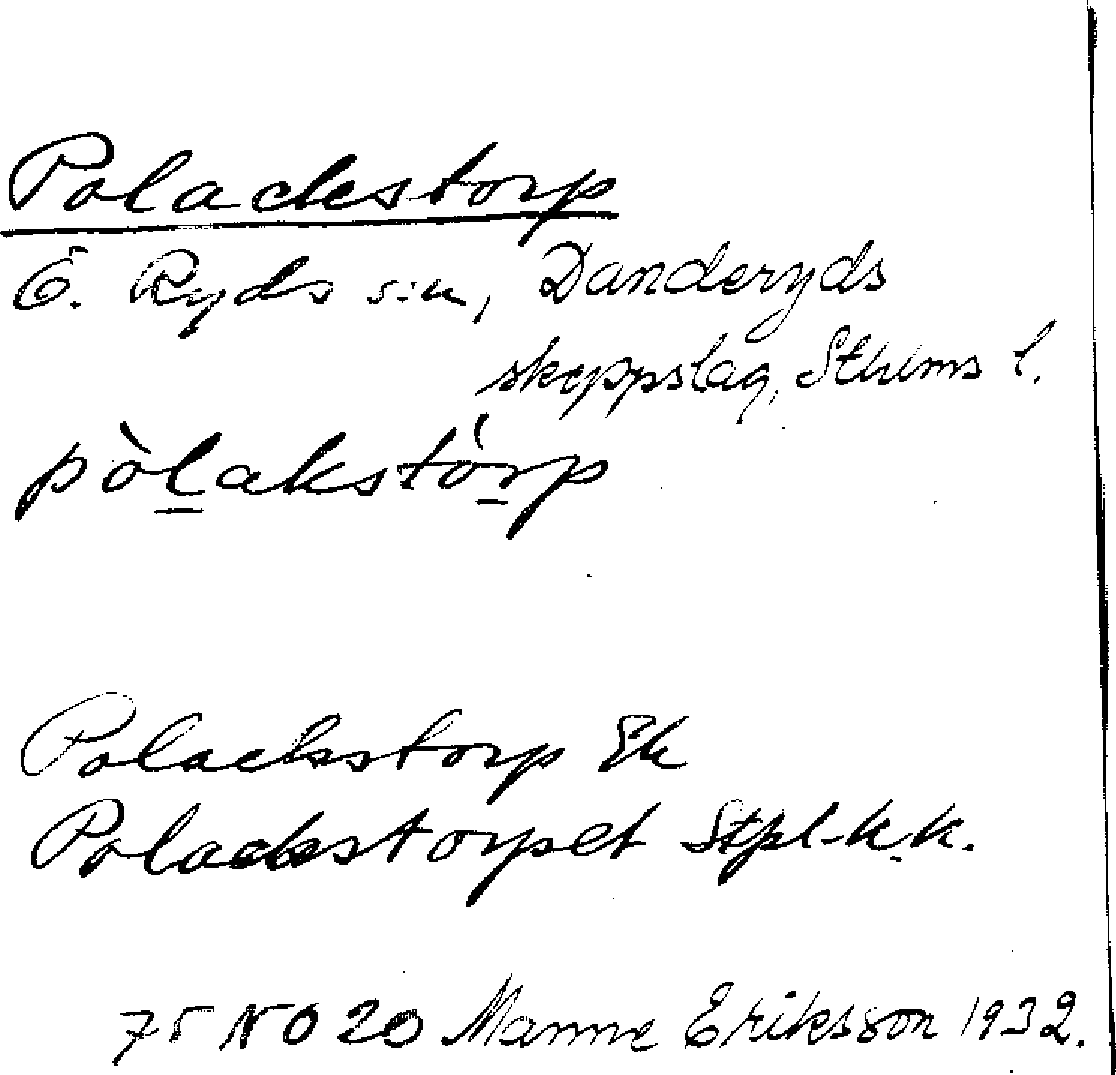 Polackstorp
Ö. Ryds sn, Danderyds
skeppslag, Sthlms l.
pòlakstórp
Polackstorp Ek
Polackstorpet Stpl-k.k.
75 NO 20 Manne Eriksson 1932.